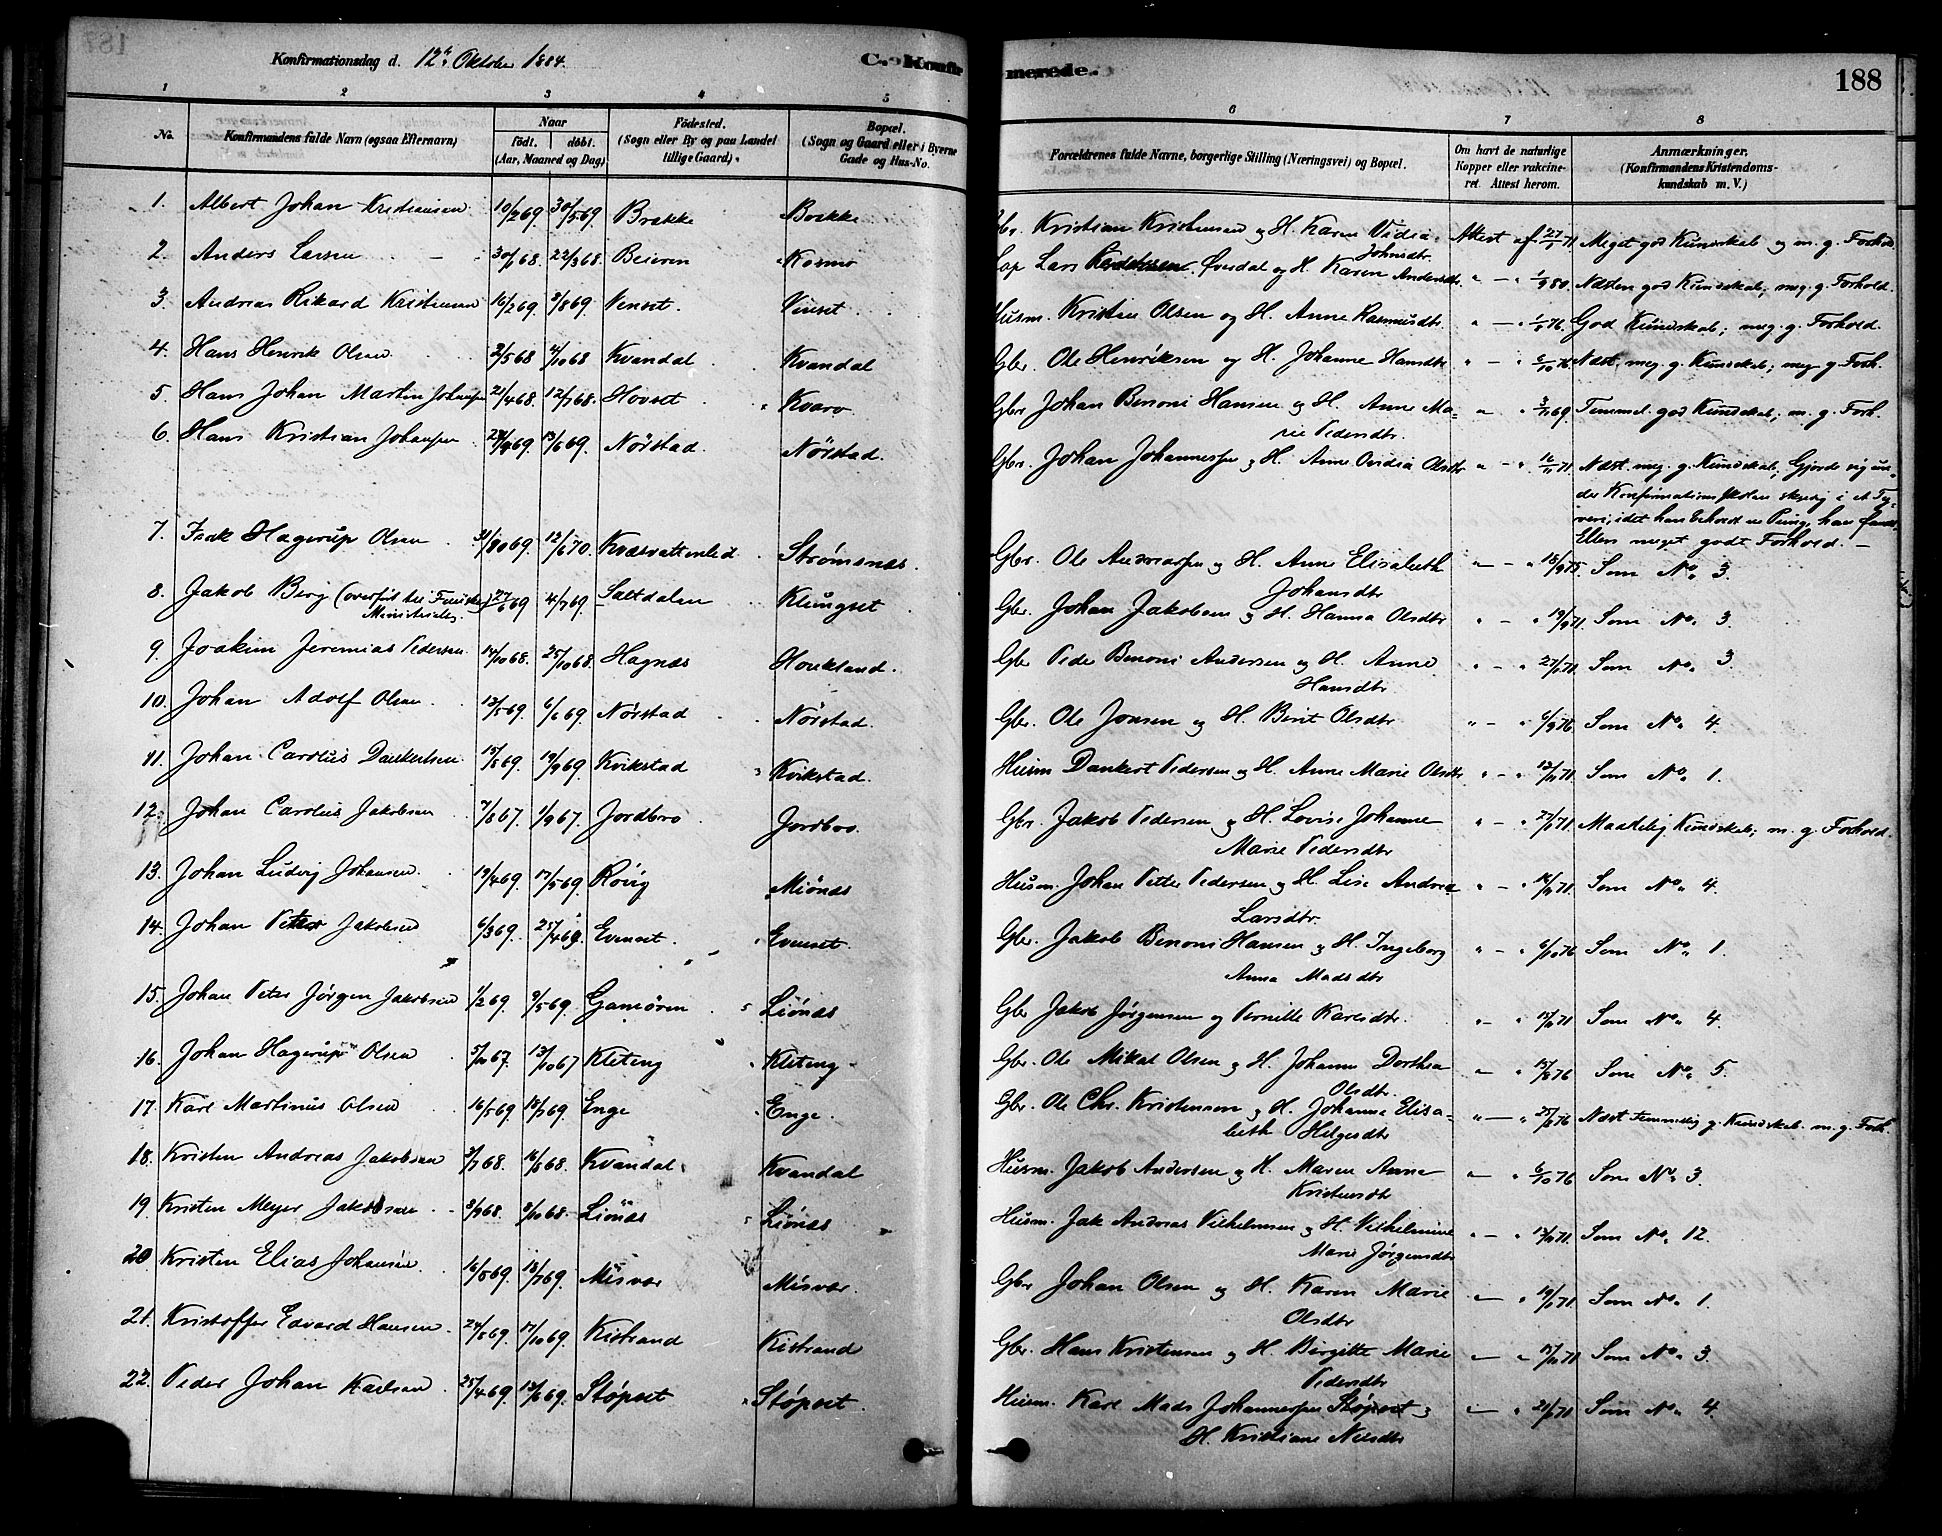 Konfirmationsdag d. 12te Oktober 1884.
C. Konfirmerede.
188
1 2 3 4 5 6 7 8
No.
Konfirmandens fulde Navn (ogsaa Efternavn)
Naar
født. døbt.
(Aar, Maaned og Dag)
Fødested.
(Sogn eller By og paa Landet tillige Gaard).
Bopæl.
(Sogn og Gaard eller i Byerne Gade og Hus-No.
Forældrenes fulde Navne, borgerlige Stilling (Næringsvei) og Bopæl.
Om havt de naturlige Kopper eller vakcineret. Attest herom.
Anmærkninger.
(Konfirmandens Kristendomskundskab m. V.)
1. Albert Johan Kristiansen 10/2 69. 30/5 69. Brække Brække Gbr. Kristian Kristensen og H. Karen Vidia Johnsdtr. Attest af Meget god Kundskab og m. g. Forhold
2. Anders Larsen 22/3 68. Beieren Kosmo Lars Øvredal og H. Karen Andersdtr. Næsten god Kundskab; meg. g. Forhold.
3. Andreas Rikard Kristensen 16/2 69. 8/8 69. Venset. Venset Husm. Kristen Olsen og H. Anne Rasmusdtr. God Kundskab; meg. g. Forhold.
4. Hans Henrik Olsen 2/5 68 4/10 68 Kvandal Kvandal Gbr. Ole Henriksen og H. Johanne Hansdtr Næst. meg. g. Kundskab; meg g. Forh.
5. Hans Johan Martin Johansen 21/4 68. 12/7 68. Hovset Kvarv Gbr. Johan Benoni Hansen og H. Anne Marie Pedersdtr. Temmel. god Kundskab; m. g. Forh.
6. Hans Kristian Johansen 13/6 69. Nørstad Nørstad. Gbr. Johan Johannessen og H. Anne Ovidia Olsdtr Næst. meg. g. Kundskab; Gjorde sig under Konfirmationsskolen skyldig i et Tyveri, idet han beholdt en Pung, han fandt. Ellers meget godt Forhold.
7. Isak Hagerup Olsen 12/6 70. Kvæsvattenlid Strømsnæs. Gbr. Ole Andreassen og H. Anne Elisabeth Johansdtr Som No. 3.
8. Jakob Berg (overført til Ministerialb.) 27/6 69 4/7 69. Saltdalen Klungset Gbr. Johan Jakobsen og H. Hanna Olsdtr Som No. 3.
9. Joakim Jeremias Pedersen 14/10 68. 25/10 68. Hagnæs Houkland. Gbr. Peder Benoni Andersen og H. Anne Hansdtr Som No. 3
10. Johan Adolf Olsen 13/5 69. 6/6 69. Nørstad Nørstad. Gbr. Ole Jonsen og H. Berit Olsdtr Som No. 4.
11. Johan Carolus Dankertsen 19/9 69. Kvikstad Kvikstad. Husm Dankert Pedersen og H. Anne Marie Olsdtr Som No. 1.
12. Johan Carolus Jakobsen 7/8 67. 1/9 67. Jordbro Jordbro. Gbr. Jakob Pedersen og H. Lovise Johanne Marie Pedersdtr Maadelig Kundskab; m. g. Forhold.
13. Johan Ludvig Johansen 19/4 69. 17/5 69. Røvig Miønæs Husm. Johan Petter Pedersen og H. Lise Andrea Larsdtr. Som No. 4.
14. Johan Peter Jakobsen 6/3 69. 25/4 69. Evenset. Evenset. Gbr. Jakob Benoni Hansen og H. Ingeborg Anna Madsdtr Som No. 1.
15. Johan Peter Jørgen Jakobsen 1/2 69. 9/5 69. Gamøren Liønæs Gbr Jakob Jørgensen og Pernille Karlsdtr. Som No. 4.
16. Johan Hagerup Olsen 13/10 67 Kleteng Kleteng Gbr. Ole Mikal Olsen og H. Johanne Dorthea Olsdtr. Som No. 5.
17. Karl Martinus Olsen 16/5 69. 18/7 69. Enge Enge. Gbr. Ole Chr. Kristensen og H. Johanna Elisabeth Helgesdtr Næst Temmelig g. Kundskab. m. g. Forh.
18. Kristen Andreas Jakobsen 3/7 68. 16/8 68. Kvandal Kvandal Husm. Jakob Andersen og H. Maren Anne Kristensdtr Som No. 3.
19. Kristen Meyer Jakobsen 3/9 68. 8/10 68. Liønæs Liønæs Husm. Jak Andreas Vilhelmsen og H. Vilhelmine Marie Jørgensdtr Som No. 12.
20 Kristen Elias Johansen. 16/5 69. 18/7 69. Misvær Misvær. Gbr Johan Olsen og H. Karen Marie Olsdtr Som No. 1.
21. Kristoffer Edvard Hansen 24/8 69. 17/10 69. Kistrand Kistrand Gbr. Hans Kristensen og H. Birgitte Marie Pedersdtr Som No. 3.
22. Peder Johan Karlsen 25/4 69. 13/6 69. Støpset Støpset. Husm. Karl Mads Johannessen Støpset og H. Kristiane Nilsdtr Som No. 4.